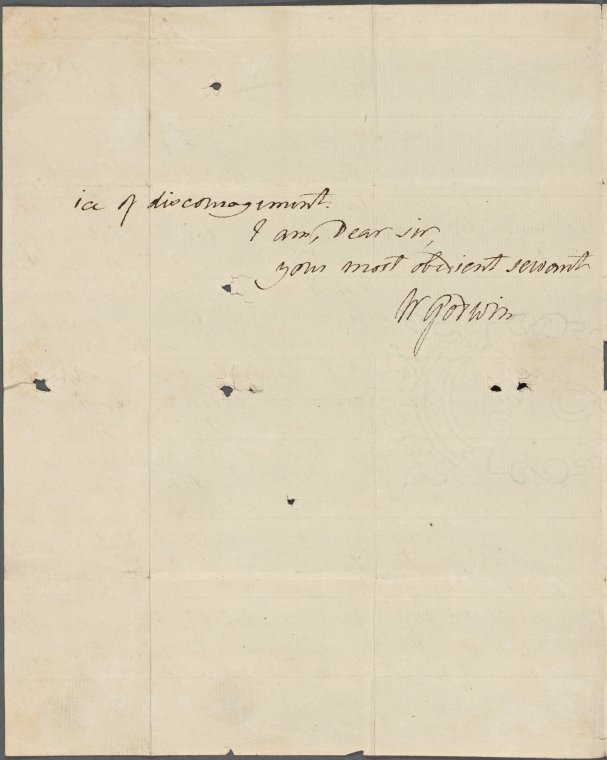 ice of discouragement.
I am, Dear sir,
your most obedient servant
W Godwin